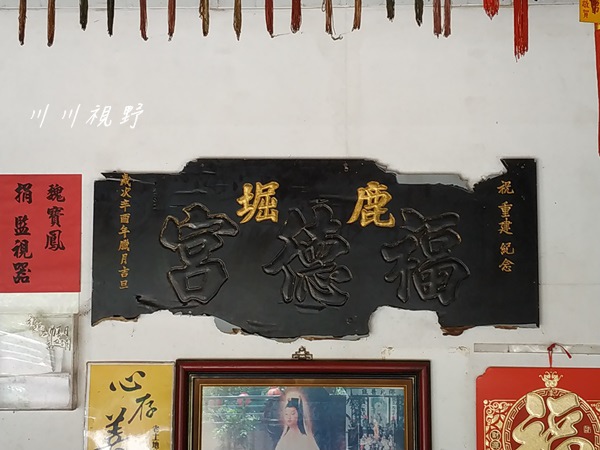 川川視野
祝重建紀念
鹿堀
福德宮
歲次辛酉年臘月吉旦
魏寶鳳
捐監視器
心存善